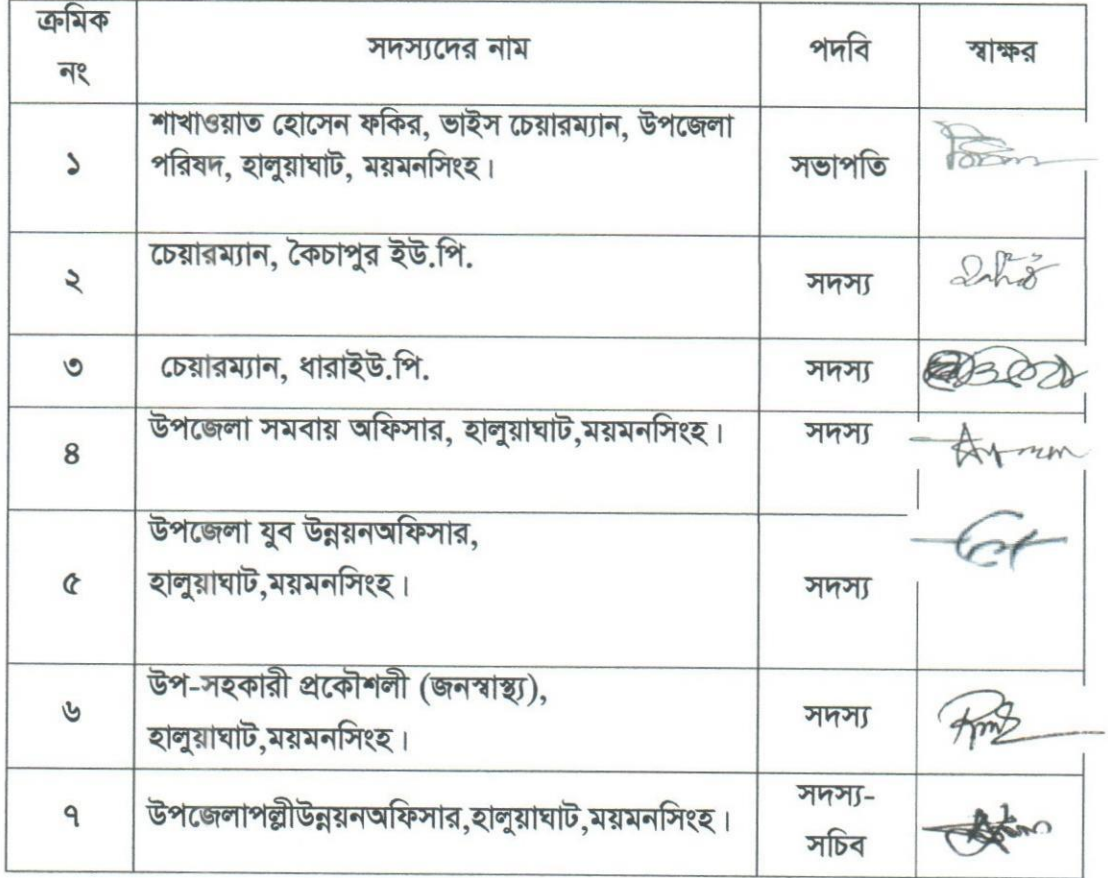 ক্রমিক
নং
সদস্যদের নাম
পদবি
স্বাক্ষর
১
শাখাওয়াত হোসেন ফকির, ভাইস চেয়ারম্যান, উপজেলা
পরিষদ, হালুয়াঘাট, ময়মনসিংহ।
সভাপতি
২
চেয়ারম্যান, কৈচাপুর ইউ.পি.
সদস্য
৩
চেয়ারম্যান, ধারাইউ.পি.
সদস্য
৪
উপজেলা সমবায় অফিসার, হালুয়াঘাট,ময়মনসিংহ।
সদস্য
৫
উপজেলা যুব উন্নয়নঅফিসার,
হালুয়াঘাট,ময়মনসিংহ।
সদস্য
৬
উপ-সহকারী প্রকৌশলী (জনস্বাস্থ্য),
হালুয়াঘাট,ময়মনসিংহ।
সদস্য
৭
উপজেলাপল্লীউন্নয়নঅফিসার,হালুয়াঘাট,ময়মনসিংহ।
সদস্য-
সচিব